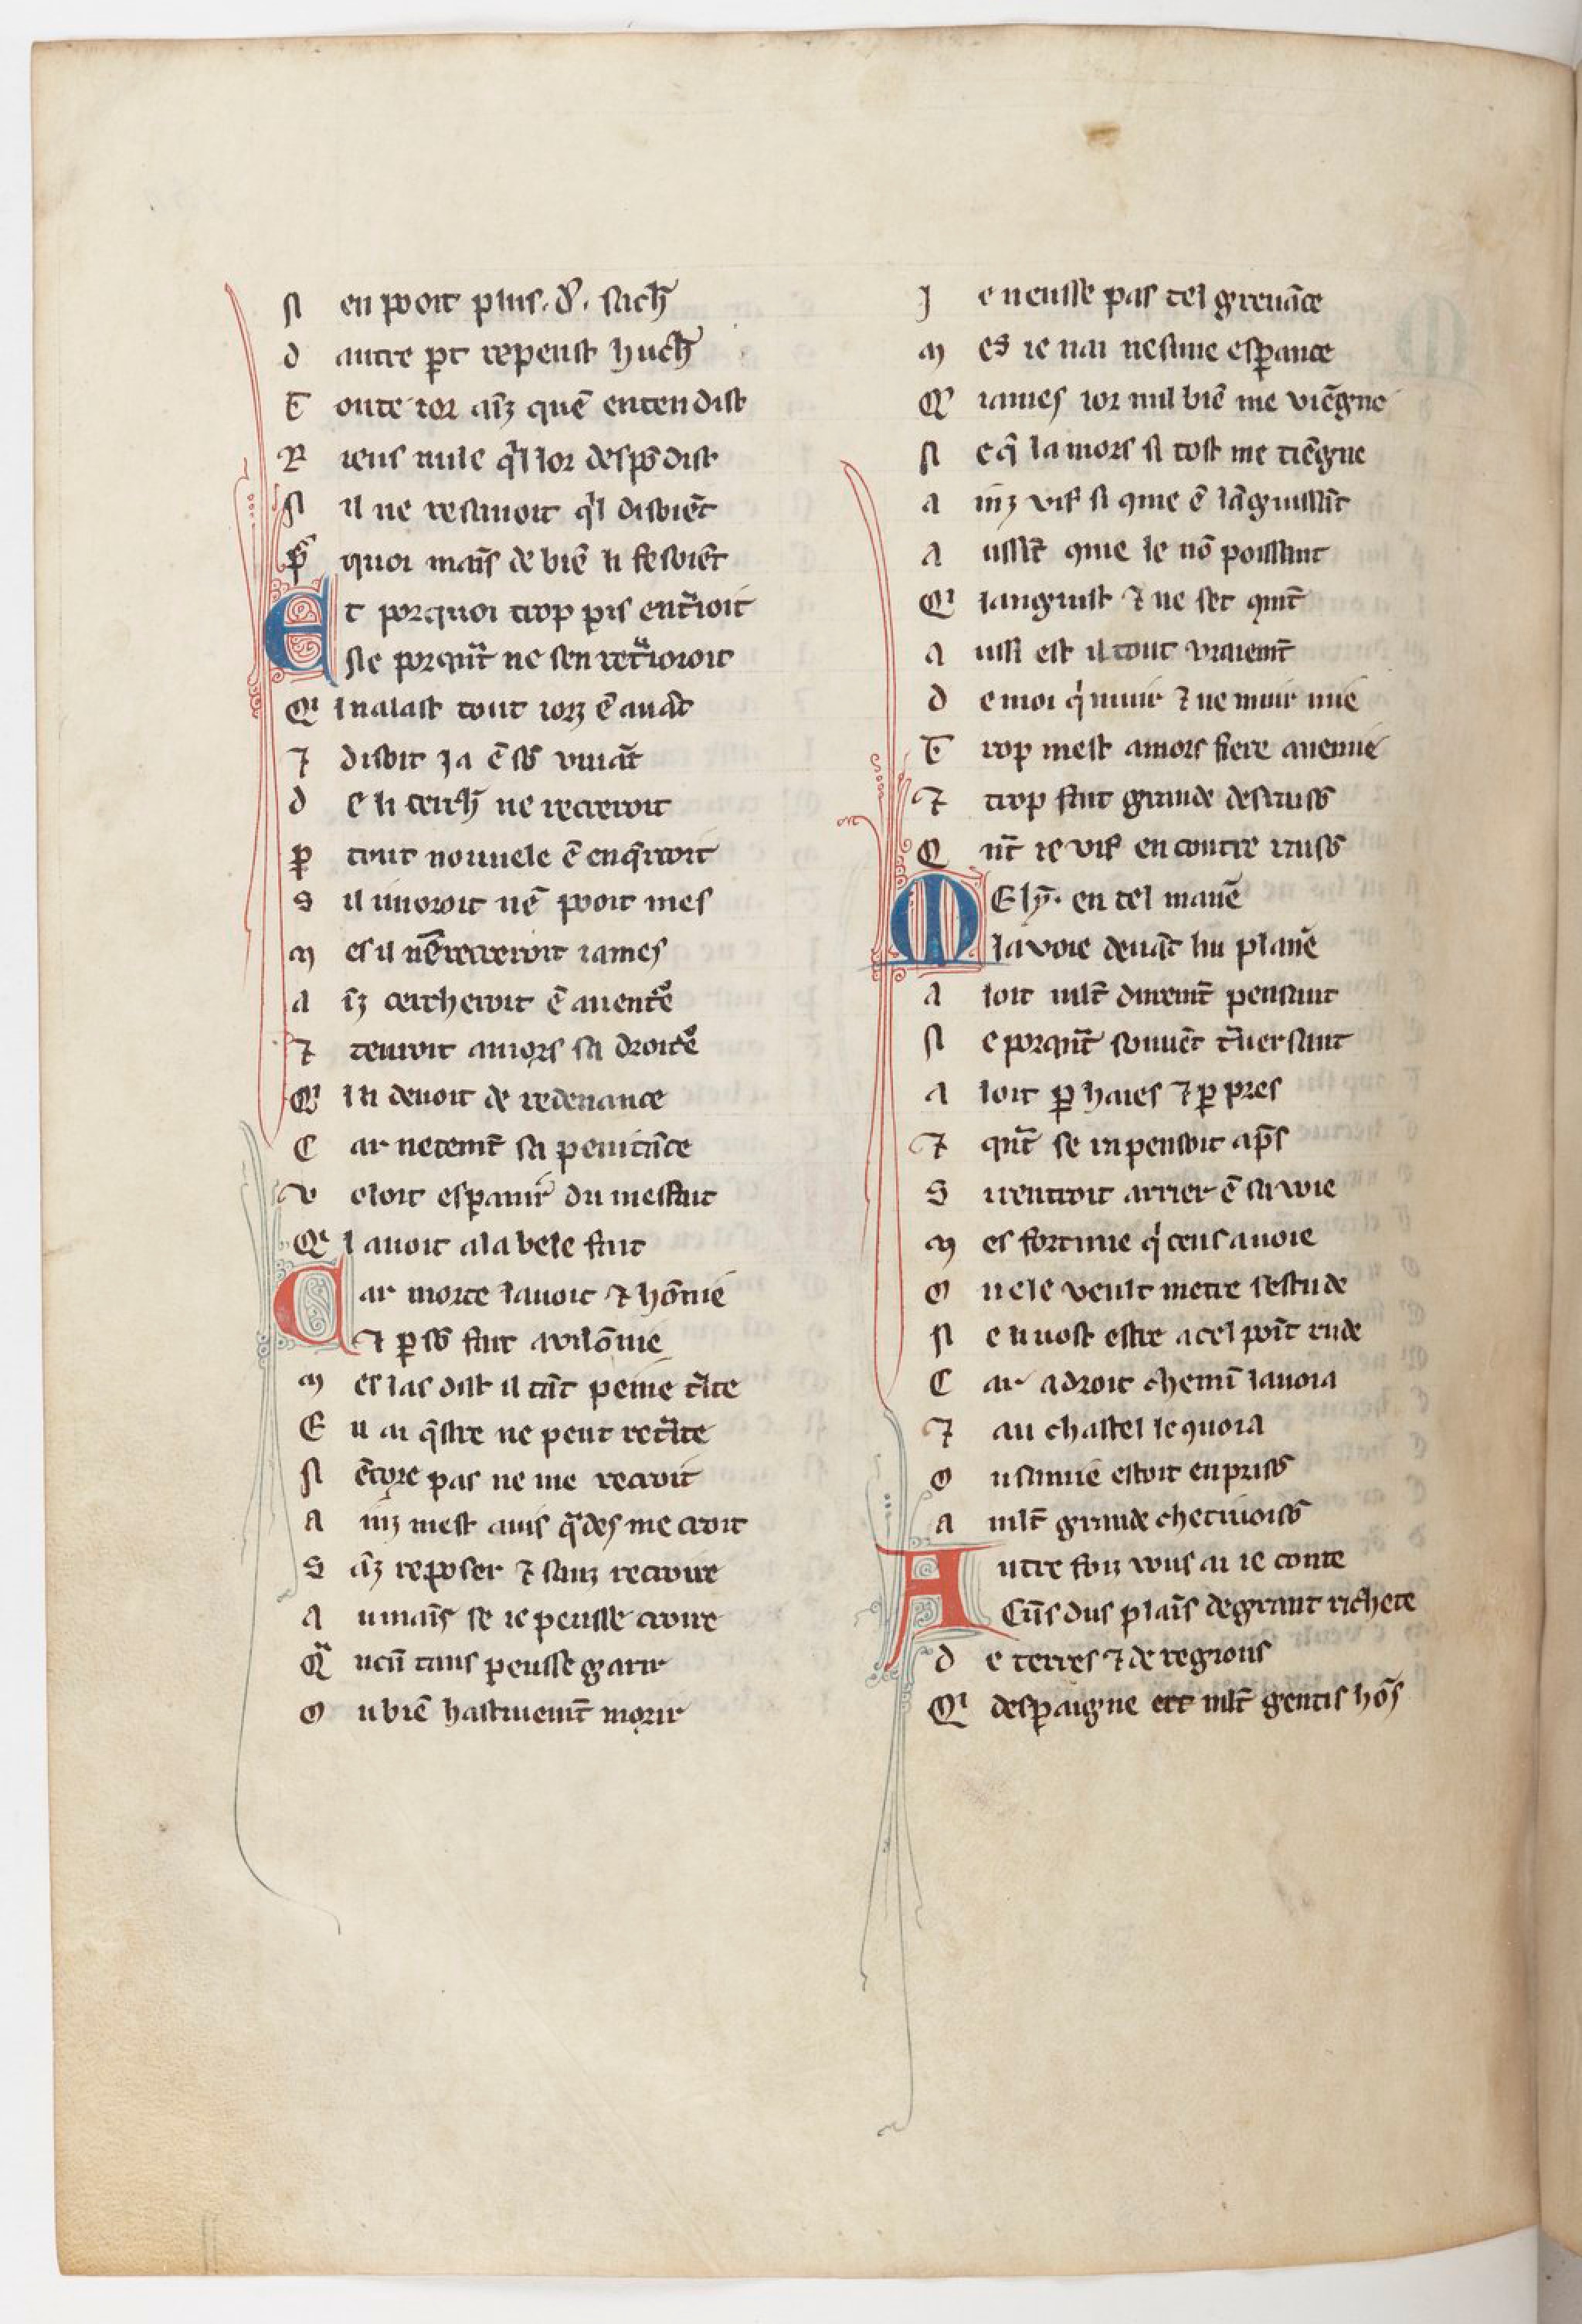 N en pooit plus .d'. sach'
D autre p̲t repeust huch'
T oute ior aīz quē entendist
R iens nule q'l lor despo'dist
N il ne resauoit q'l disoiēt
P' quoi mais̄ de biē li fesoiēt
E t porquoi trop pis entrioit
Ne porqn̄t ne sen ret'oioroit
Qi l nalast tout iorz ē auāt
⁊ disoit Ja ē so' viuāt
D e li cerch' ne recreroit
P̲ tout nouuele ē enq'rroit
S il i moroit nē pooit mes
M es il nē recreroit iames
A īz cercheroit ē auent'e
⁊ tenroit amors sa droit'e
Qi l li deuoit de redeuance
C ar netemt̄ sa penitāce
V oloit espanir du mesfait
Qi l auoit a la bele fait
C ar morte lauoit ⁊ hōnie
⁊ p̲ so' fait a vilōnie
M es las dist il tāt peine t'ite
E n ai q̄stre ne peut ret'ite
N ēcore pas ne me recroit
A inz mest auis q̄des me croit
S āz reposer ⁊ sanz recroire
A u mais̄ se ie peusse croire
Qa ucū tans peusse garir
O u biē hastiuemt̄ morir
J e neusse pas tel greuāce
M es ie nai nesune esp̲ance
Q' iames ior nul biē me viēgne
N e q̄ la mors si tost me tiēgne
A inz vif si 9me ē lāguissāt
A ussit̄ 9me le nō poissant
Qi languist ⁊ ne set 9mt̄
A ussi est il tout vraiemt̄
D e moi q' muir ⁊ ne muir mie
T rop mest amors fiere anemie
⁊ trop fait grande desraiso'
Q nt̄ ie vif en contre raiso'
M Ely. en tel manē
la voie deuāt lui planē
A loit ml't duremt̄ pensant
N e porqn̄t souuēt t'uersant
A loit p̲ haies ⁊ p̲ pres
⁊ qn̄t se rapensoit ap̄s
S i rentroit arrier ē sa voie
M es fortune q' ceus auoie
O u ele veult metre sestude
N e li vost estre a cel poīt rude
C ar a droit chemī lauoia
⁊ au chastel le 9uoia
O u samie estoit en priso'
A ml't grande chetiuoiso'
A utre foiz vous ai ie conte
Cūs dus plaīs de grant richete
D e terres ⁊ de regions
Qi desp̲aigne ert ml't gentis hōs